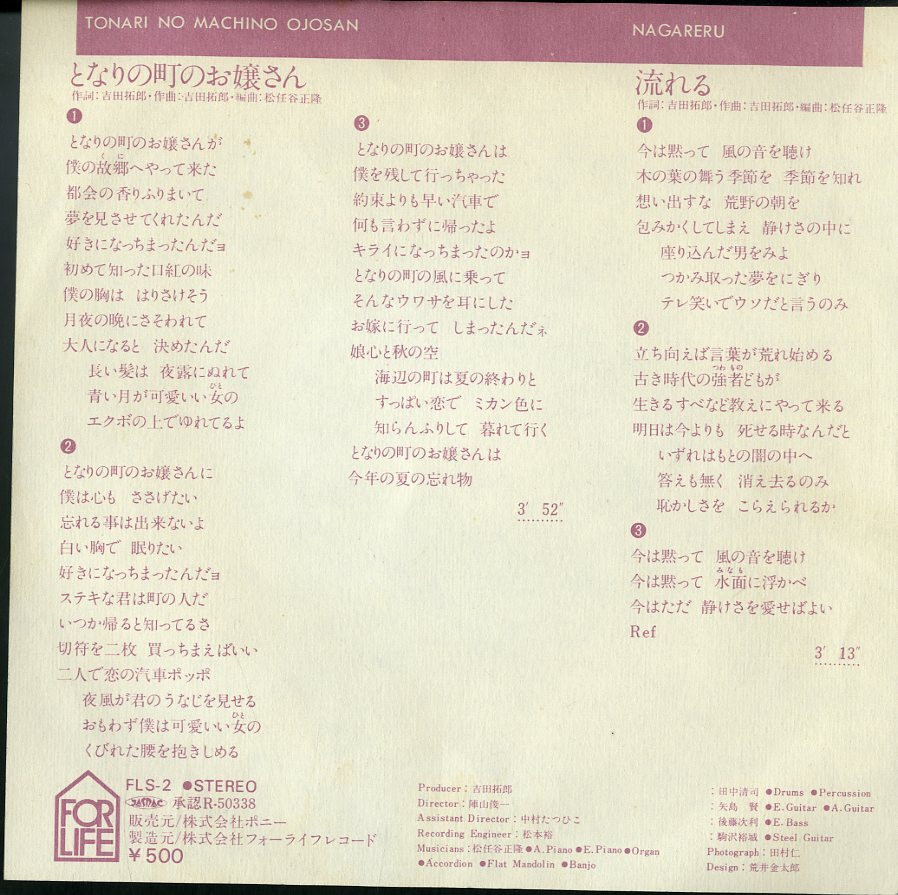 TONARI NO MACHINO OJOSAN
となりの町のお嬢さん
作詞:吉田拓郎・作曲:吉田拓郎・編曲:松任谷正隆
❶
となりの町のお嬢さんが
僕の故郷へやって来た
くに
都会の香りふりまいて
夢を見させてくれたんだ
好きになっちまったんだョ
初めて知った口紅の味
僕の胸は はりさけそう
月夜の晩にさそわれて
大人になると 決めたんだ
長い髪は 夜露にぬれて
青い月が可愛いい女の
ひと
エクボの上でゆれてるよ
❷
となりの町のお嬢さんに
僕は心も ささげたい
忘れる事は出来ないよ
白い胸で 眠りたい
好きになっちまったんだョ
ステキな君は町の人だ
いつか帰ると知ってるさ
切符を二枚 買っちまえばいい
二人で恋の汽車ポッポ
夜風が君のうなじを見せる
おもわず僕は可愛いい女の
ひと
くびれた腰を抱きしめる
❸
となりの町のお嬢さんは
僕を残して行っちゃった
約束よりも早い汽車で
何も言わずに帰ったよ
キライになっちまったのかョ
となりの町の風に乗って
そんなウワサを耳にした
お嫁に行って しまったんだネ
娘心と秋の空
海辺の町は夏の終わりと
すっぱい恋で ミカン色に
知らんふりして 暮れて行く
となりの町のお嬢さんは
今年の夏の忘れ物
3′ 52″
NAGARERU
流れる
作詞:吉田拓郎・作曲:吉田拓郎・編曲:松任谷正隆
❶
今は黙って 風の音を聴け
木の葉の舞う季節を 季節を知れ
想い出すな 荒野の朝を
包みかくしてしまえ 静けさの中に
座り込んだ男をみよ
つかみ取った夢をにぎり
テレ笑いでウソだと言うのみ
❷
立ち向えば言葉が荒れ始める
古き時代の強者どもが
つわもの
生きるすべなど教えにやって来る
明日は今よりも 死せる時なんだと
いずれはもとの闇の中へ
答えも無く 消え去るのみ
恥かしさを こらえられるか
❸
今は黙って 風の音を聴け
今は黙って 水面に浮かべ
みなも
今はただ 静けさを愛せばよい
Ref
3′ 13″
FOR LIFE
FLS-2 ●STEREO
JASRAC 承認R-50338
販売元/株式会社ポニー
製造元/株式会社フォーライフレコード
¥500
Producer:吉田拓郎
Director:陣山俊一
Assistant Director:中村たつひこ
Recording Engineer:松本裕
Musicians:松任谷正隆●A.Piano●E.Piano●Organ
●Accordion●Flat Mandolin●Banjo
:田中清司●Drums●Percussion
:矢島 賢●E.Guitar●A.Guitar
:後藤次利●E.Bass
:駒沢裕城●Steel Guitar
Photograph:田村仁
Design:荒井金太郎